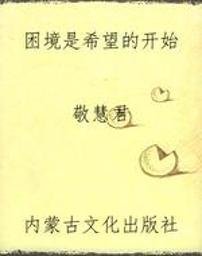 困境是希望的开始
敬慧君
内蒙古文化出版社